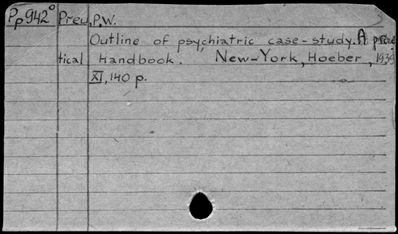 Pp942° Preu, P.W.
Outline of psychiatric case-study. A prac
tical handbook. New-York, Hoeber, 1939
XI, 140 p.